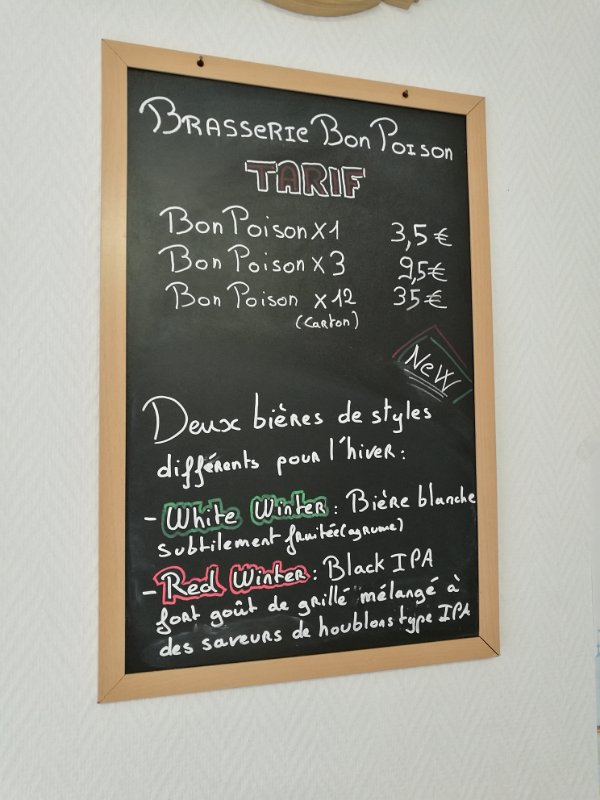 Brasserie Bon Poison
TARIF
Bon Poison x1 3,5€
Bon Poison x3 9,5€
Bon Poison x12 35€
(carton)
NeW
Deux bières de styles
différents pour l'hiver :
- White Winter : Bière blanche
subtilement fruitée (agrume)
- Red Winter : Black IPA
fort goût de grillé mélangé à
des saveurs de houblons type IPA